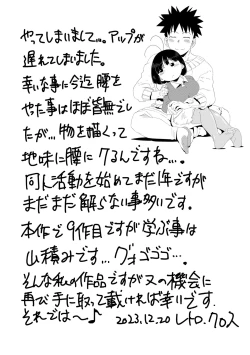 やってしまいまして…。アップが
遅れてしまいました。
幸いな事に今迄腰を
やた事はほぼ皆無でし
たが…物を描くって
地味に腰にクるんですね…。
同人活動を始めてまだ1年ですが
まだまだ解らない事多いです。
本作で9作目ですが学ぶ事は
山積みです…グォゴゴゴ…。
そんな私の作品ですが又の機会に
再び手に取って載ければ幸いです.
それでは～♪ 2023.12.20 レトロ.クロス